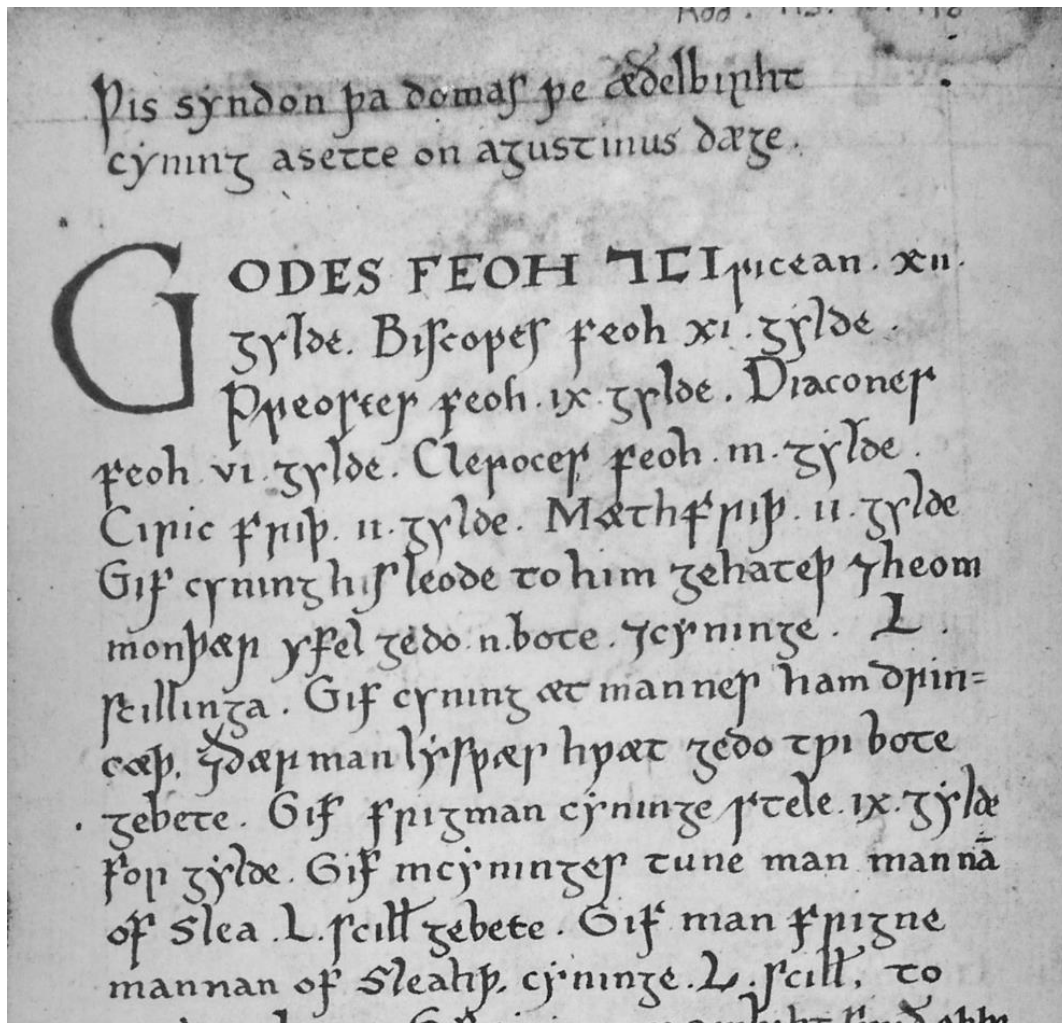 Þis syndon þa domas þe æðelbirht
cyning asette on agustinus dæge.
GODES FEOH ⁊CIricean. xii.
gylde. Biscopes feoh xi. gylde.
Preostes feoh. ix. gylde. Diacones
feoh. vi. gylde. Cleroces feoh. iii. gylde.
Ciric friþ. ii. gylde. Mæthfriþ. ii. gylde
Gif cyning his leode to him gehateþ ⁊heom
monþær yfel gedo. ii. bote. ⁊cyninge. L.
scillinga. Gif cyning æt mannes ham drin=
cæþ. ⁊ðær man lyswæs hwæt gedo twi bote
gebete. Gif frigman cyninge stele. ix. gylde
for gylde. Gif incyninges tune man mannā
of slea. L. scill gebete. Gif man frigne
mannan of sleahþ. cyninge. L. scill, to